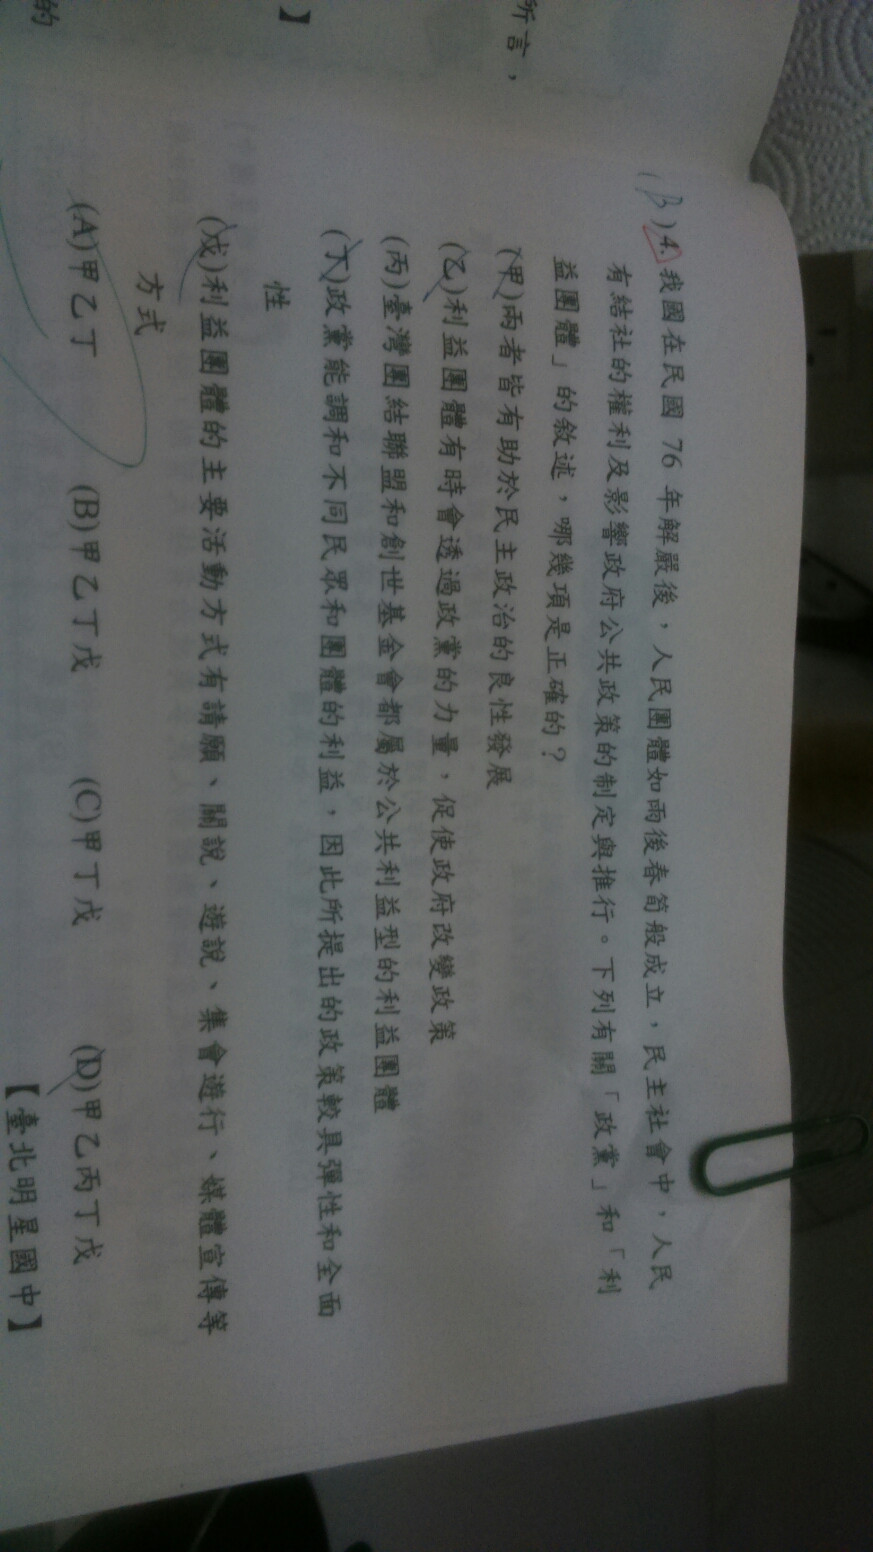 所言，
】
的
(B)4.我國在民國 76 年解嚴後，人民團體如雨後春筍般成立，民主社會中，人民
有結社的權利及影響政府公共政策的制定與推行。下列有關「政黨」和「利
益團體」的敘述，哪幾項是正確的？
(甲)兩者皆有助於民主政治的良性發展
(乙)利益團體有時會透過政黨的力量，促使政府改變政策
(丙)臺灣團結聯盟和創世基金會都屬於公共利益型的利益團體
(丁)政黨能調和不同民眾和團體的利益，因此所提出的政策較具彈性和全面
性
(戊)利益團體的主要活動方式有請願、關說、遊說、集會遊行、媒體宣傳等
方式
(A)甲乙丁 (B)甲乙丁戊 (C)甲丁戊 (D)甲乙丙丁戊
【臺北明星國中】